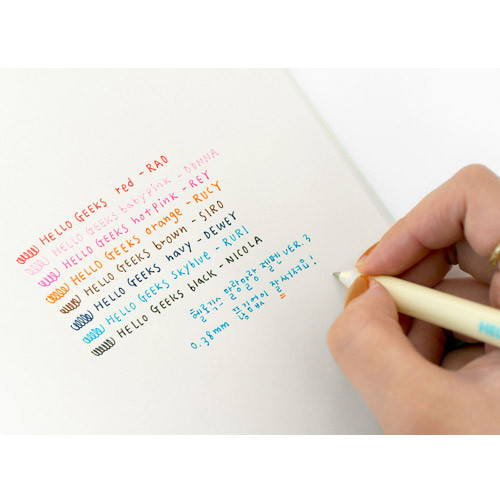 HELLO GEEKS red - RAO
HELLO GEEKS babypink - DONNA
HELLO GEEKS hotpink - REY
HELLO GEEKS orange - RUCY
HELLO GEEKS brown - SIRO
HELLO GEEKS navy - DEWEY
HELLO GEEKS skyblue - RURI
HELLO GEEKS black - NICOLA
헬로긱스 말랑말랑 젤펜 VER. 3
0.38mm 끊김없이 잘 써져요!
HE